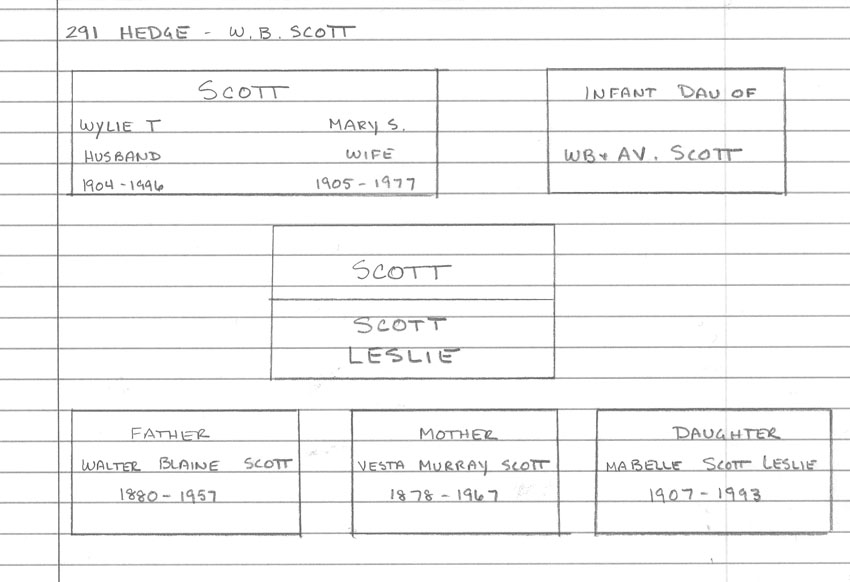 291 HEDGE - W.B. SCOTT
SCOTT
WYLIE T MARY S.
HUSBAND WIFE
1904-1996 1905-1977
INFANT DAU OF
WB+ AV. SCOTT
SCOTT
SCOTT
LESLIE
FATHER
WALTER BLAINE SCOTT
1880-1957
MOTHER
VESTA MURRAY SCOTT
1878-1967
DAUGHTER
MABELLE SCOTT LESLIE
1907-1993